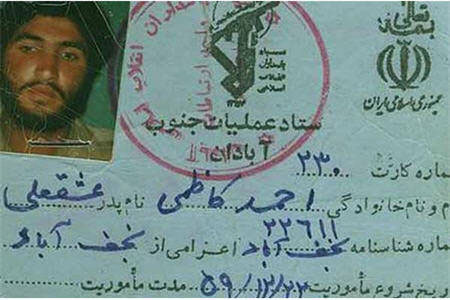 بسمه تعالی
سپاه
پاسداران
انقلاب
اسلامی
جمهوری اسلامی ایران
ستاد عملیات جنوب
آبادان
شماره کارت ۲۳۰
م و نام خانوادگی احمد کاظمی نام پدر عشقعلی
شماره شناسنامه ۲۲۶۱۱ نجف آباد اعزامی از نجف آباد
ریخ شروع مأموریت ۵۹/۱۲/۲۳ مدت مأموریت